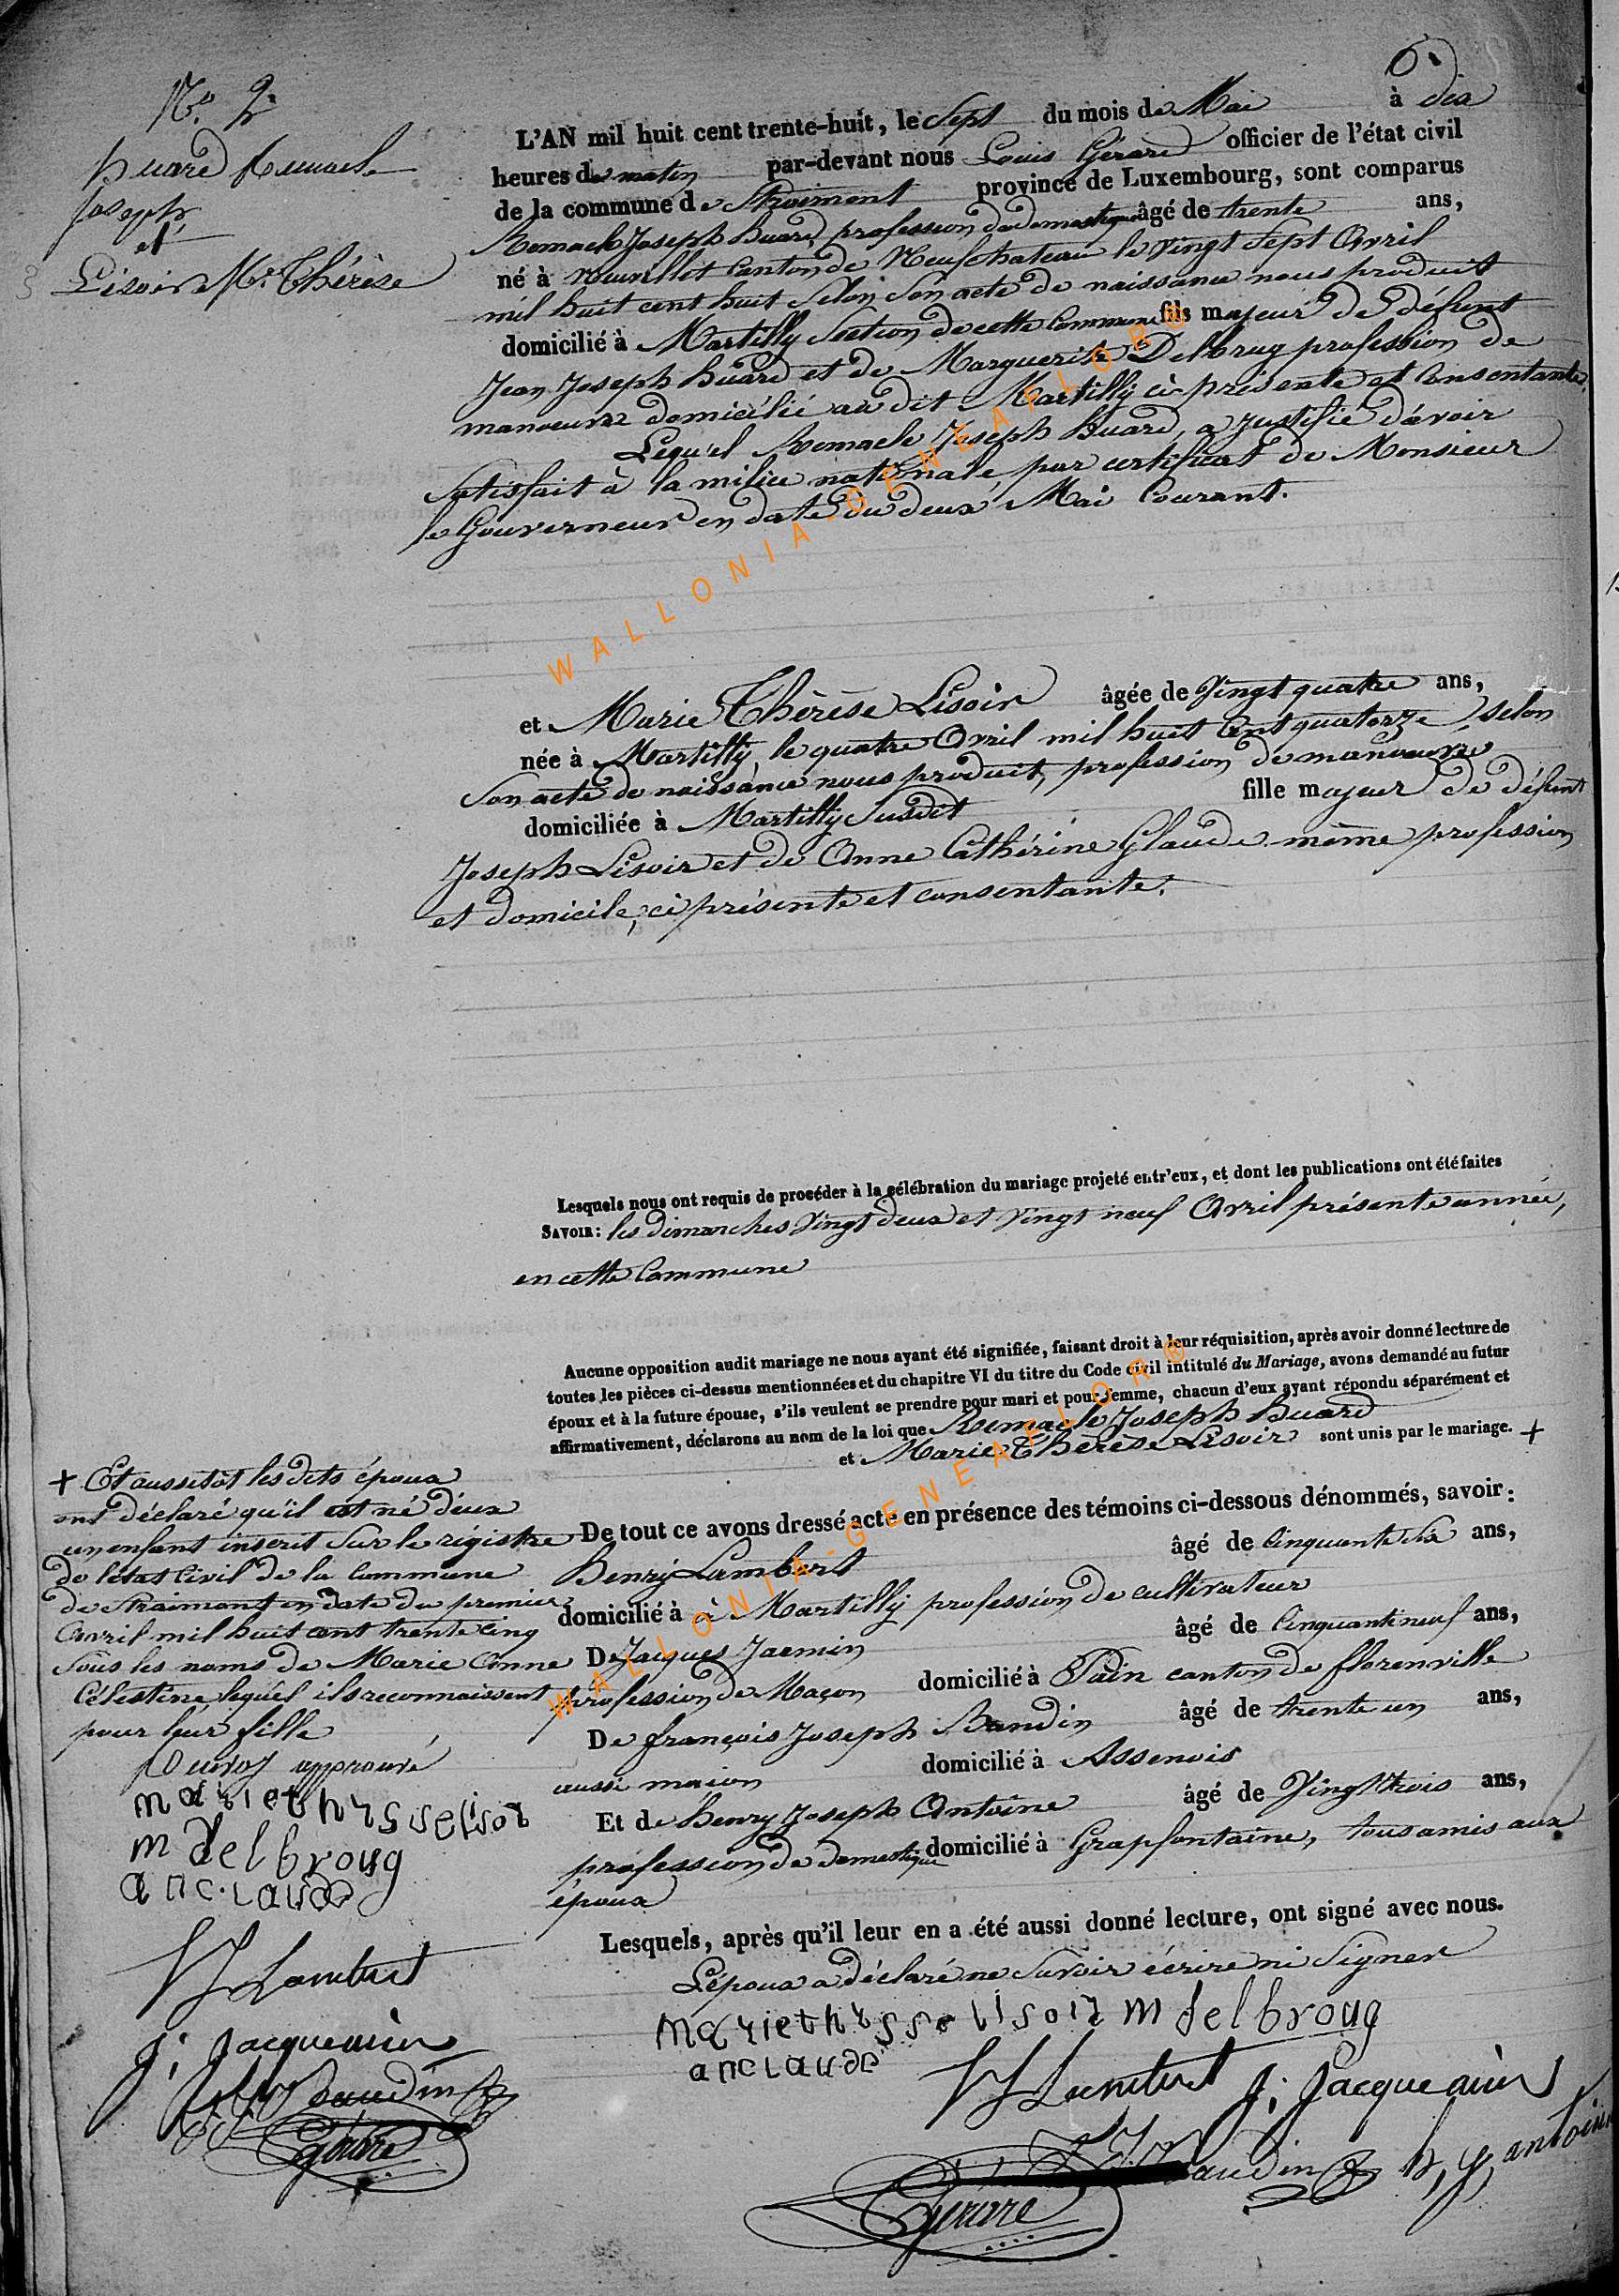 6.
N.o 2.
huard Remacle
Joseph
et
Lisoir M.e Thérèse
L'AN mil huit cent trente-huit, le Sept du mois de Mai à dix
heures du matin par-devant nous Louis Gérard officier de l'état civil
de la commune de Straimont province de Luxembourg, sont comparus
Remacle Joseph huard, profession de domestique âgé de trente ans,
né à Neuvillet Canton de Neufchateau le vingt Sept Avril
mil huit cent huit Selon Son acte de naissance nous produit
domicilié à Martilly Section de cette Commune fils majeur de défunt
Jean Joseph huard et de Marguerite Delbrug profession de
manoeuvre domicilié au dit Martilly ci-présente et Consentante
Lequel Remacle Joseph huard, a justifié d'avoir
Satisfait à la milice nationale, par certificat de Monsieur
le Gouverneur en date du deux Mai Courant.
et Marie Thérèse Lisoir âgée de Vingt quatre ans,
née à Martilly, le quatre Avril mil huit Cent quatorze, selon
Son acte de naissance nous produit, profession de manoeuvre
domiciliée à Martilly Susdit fille majeur de défunt
Joseph Lisoir et de Anne Cathérine Glaude même profession
et domicile, ci présente et consentante.
Lesquels nous ont requis de procéder à la célébration du mariage projeté entr'eux, et dont les publications ont été faites
SAVOIR : les dimanches Vingt deux et Vingt neuf Avril présente année,
en cette Commune
Aucune opposition audit mariage ne nous ayant été signifiée, faisant droit à leur réquisition, après avoir donné lecture de
toutes les pièces ci-dessus mentionnées et du chapitre VI du titre du Code civil intitulé du Mariage, avons demandé au futur
époux et à la future épouse, s'ils veulent se prendre pour mari et pour femme, chacun d'eux ayant répondu séparément et
affirmativement, déclarons au nom de la loi que Remacle Joseph huard
et Marie Thérèse Lisoir sont unis par le mariage. +
+ Et aussitôt les dits époux
ont déclaré qu'il est né d'eux
un enfant inscrit Sur le régistre
de l'état Civil de la Commune
de Straimont en date du premier
Avril mil huit cent trente Cinq
Sous les noms de Marie Anne
Célestine, lequel ils reconnaissent
pour leur fille
Renvoy approuvé
mariethrsselisor
m delbroug
anc.laude
J. Lambert
j. jacquemin
F J Baudin
Gérard
De tout ce avons dressé acte en présence des témoins ci-dessous dénommés, savoir :
Henry Lambert âgé de Cinquante Six ans,
domicilié à à Martilly profession de cultivateur
De Jacques Jacmin âgé de Cinquante neuf ans,
profession de Maçon domicilié à Puin canton de florenville
De françois Joseph Baudin âgé de trente un ans,
aussi maçon domicilié à Assenois
Et de henry Joseph Antoine âgé de Vingt trois ans,
profession de domestique domicilié à Grapfontaine, tous amis aux
époux
Lesquels, après qu'il leur en a été aussi donné lecture, ont signé avec nous.
L'époux a déclaré ne Savoir écrire ni Signer
mariethrsselisoir m delbroug
anclaude
J Lambert j. jacquemin
F J Baudin h, j, antoine
Gérard
WALLONIA-GENEAFLOR®
WALLONIA-GENEAFLOR®